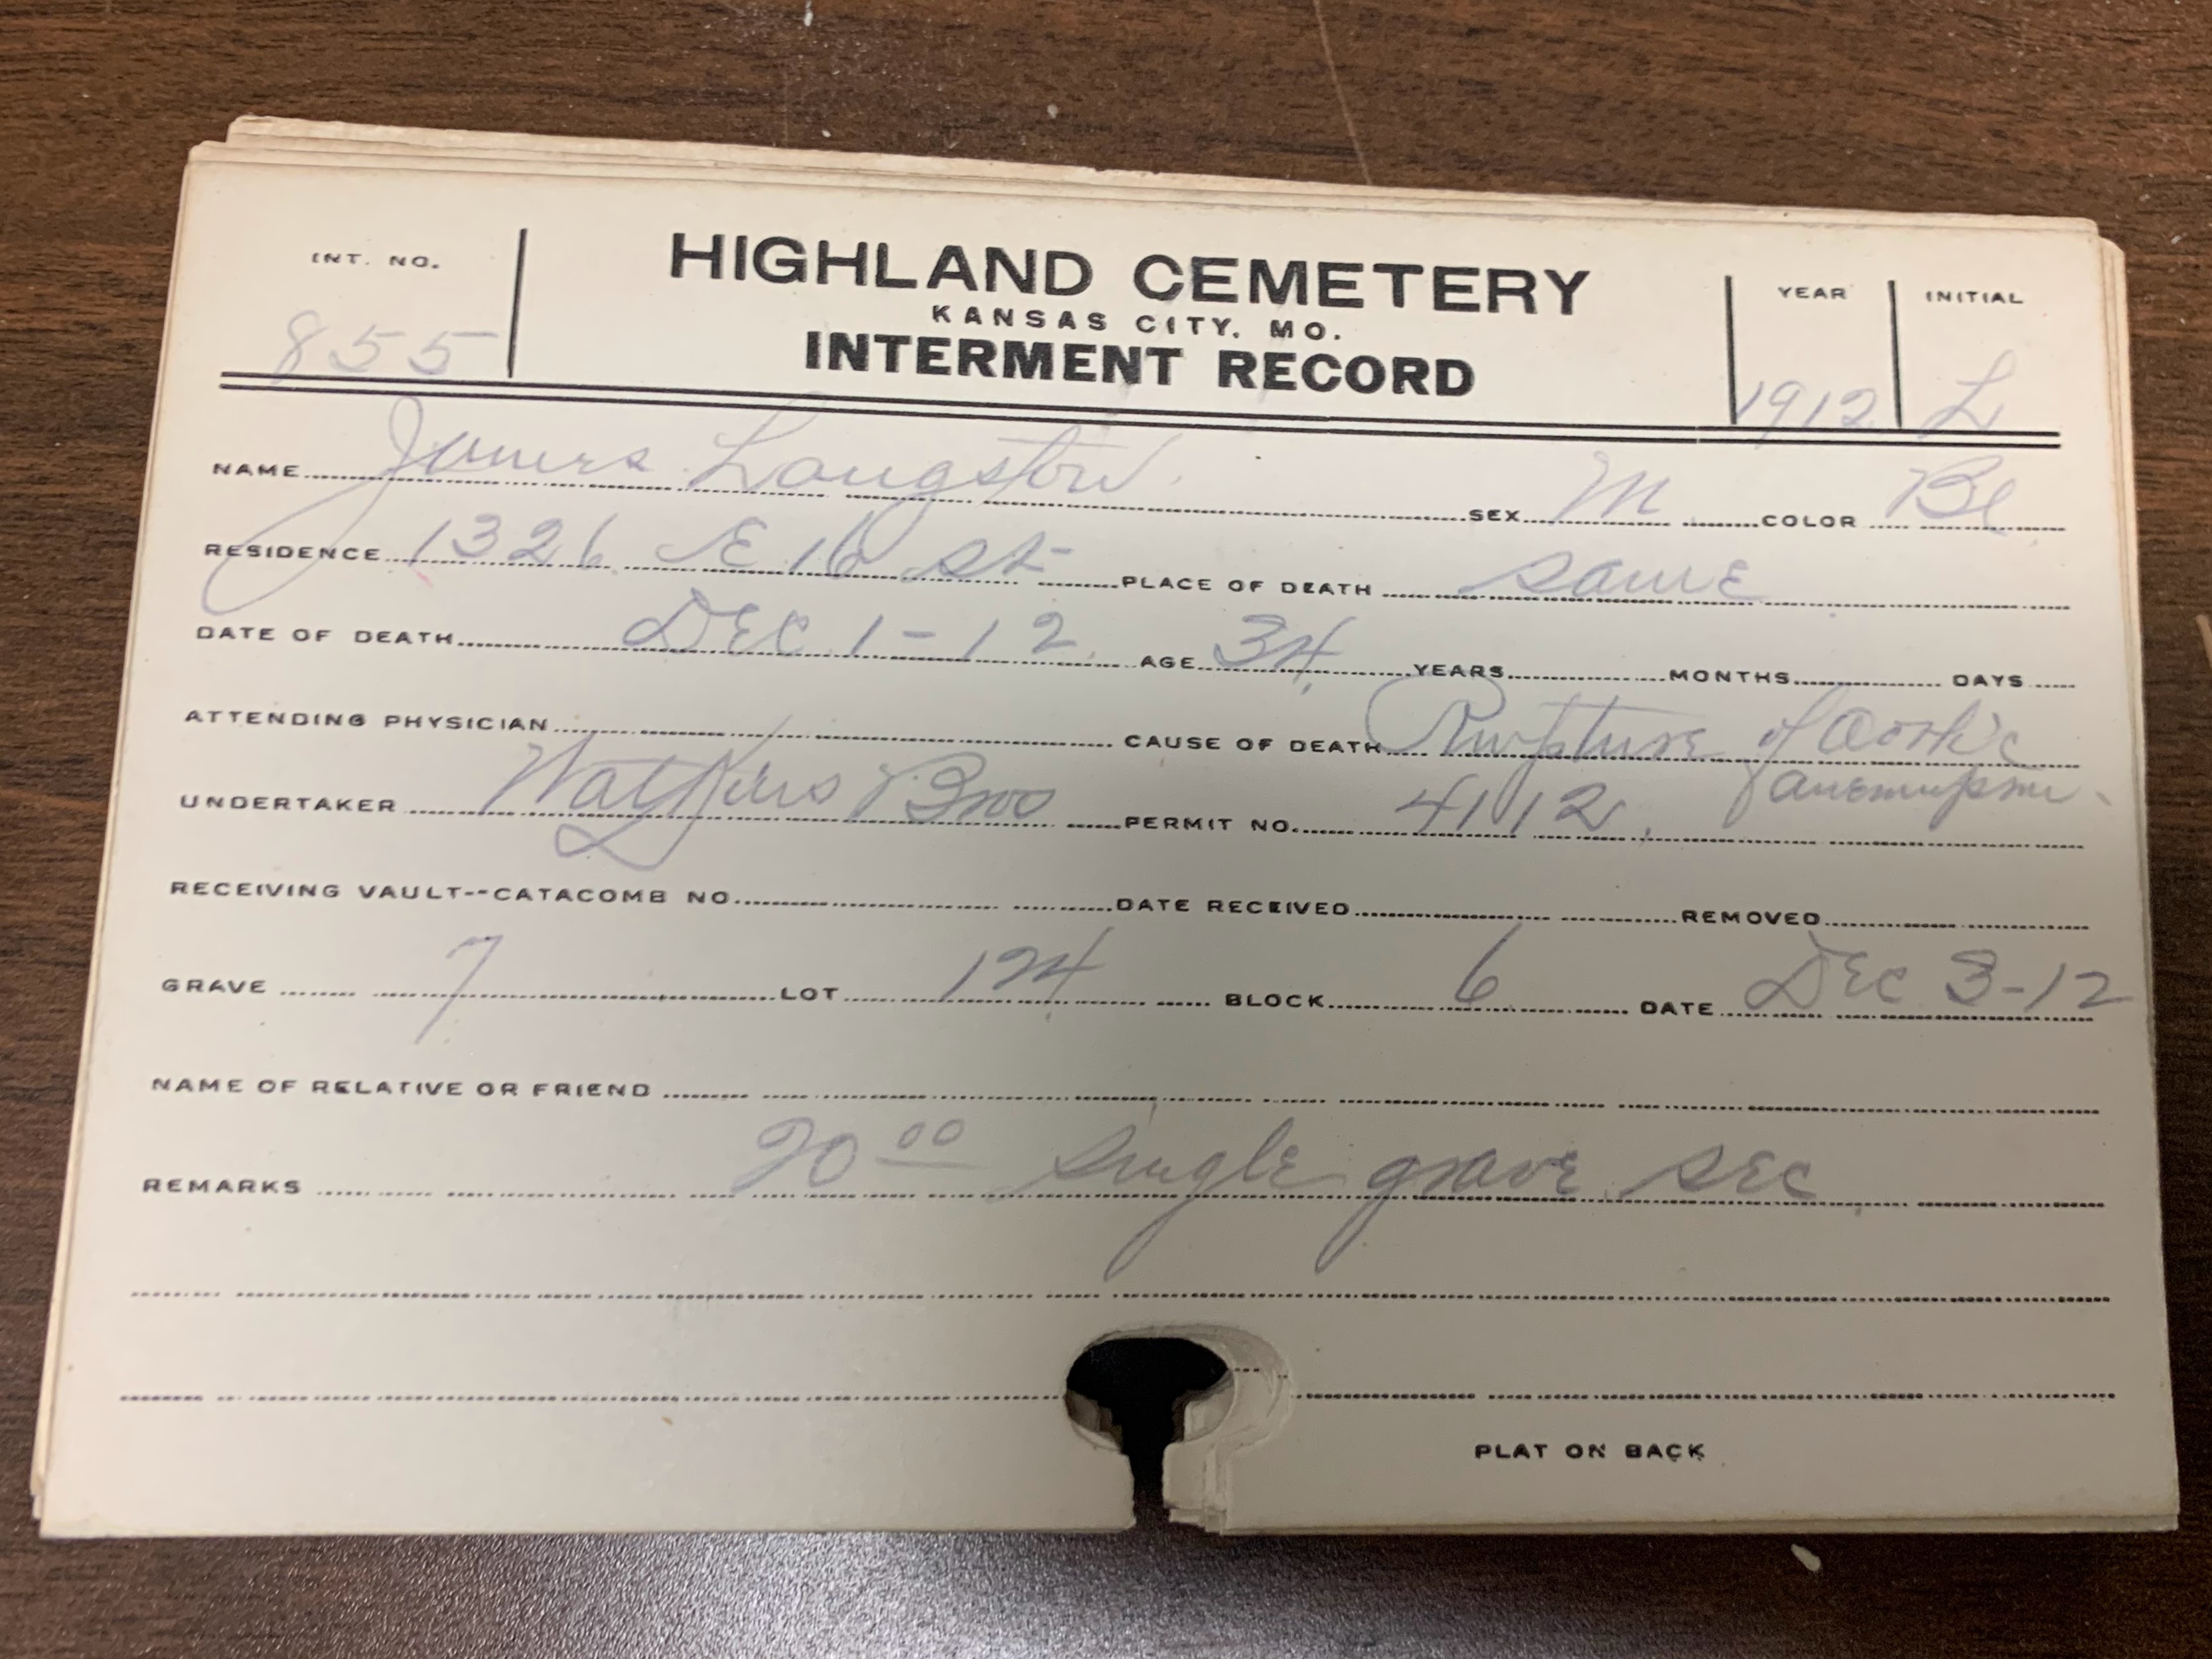 INT. NO. HIGHLAND CEMETERY YEAR INITIAL
KANSAS CITY, MO.
855 INTERMENT RECORD 1912 L
NAME James Langston SEX M COLOR Bl
RESIDENCE 1326 E 16 St PLACE OF DEATH Same
DATE OF DEATH Dec 1-12 AGE 34 YEARS MONTHS DAYS
ATTENDING PHYSICIAN CAUSE OF DEATH Rupture of Aortic
UNDERTAKER Watkins Bros PERMIT NO. 4112
RECEIVING VAULT--CATACOMB NO. DATE RECEIVED REMOVED
GRAVE 7 LOT 124 BLOCK 6 DATE Dec 3-12
NAME OF RELATIVE OR FRIEND
REMARKS 20 00 Single grave Sec
PLAT ON BACK